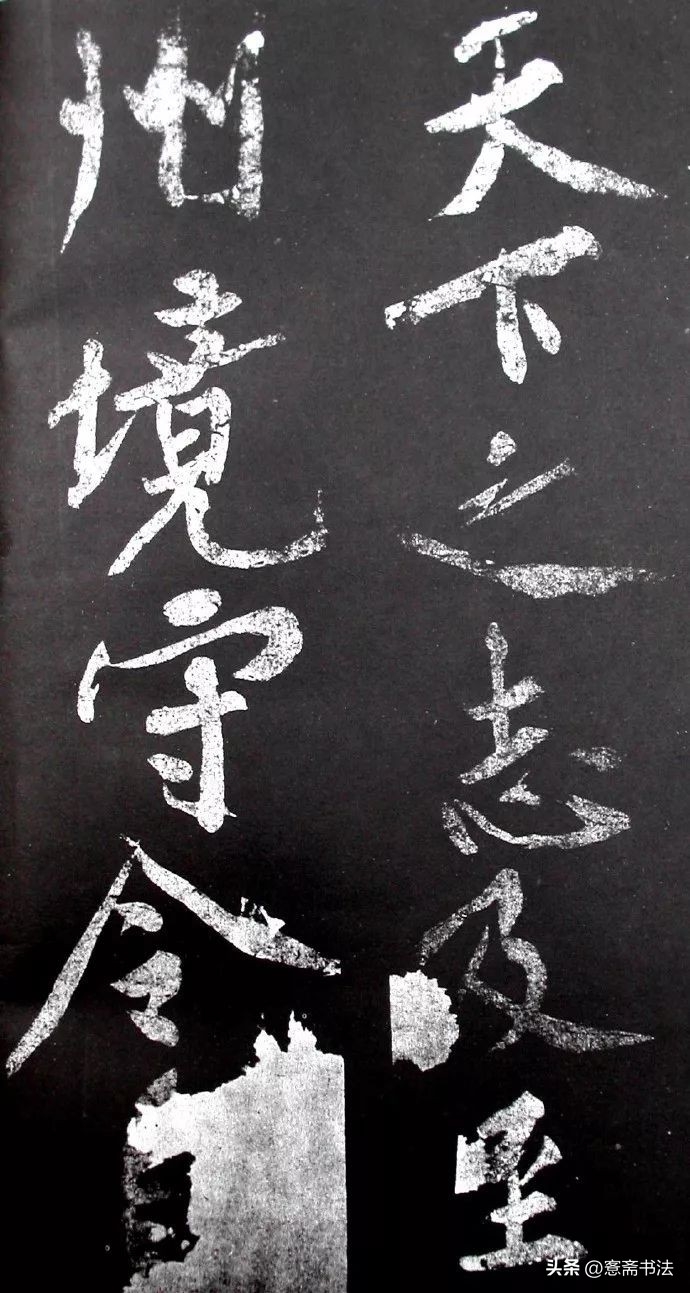 天下之志及至
州境守令自
头条 @愙斋书法